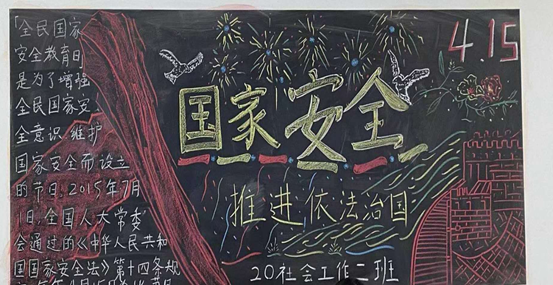 「全民国家
安全教育日」
是为了增强
全民国家安
全意识,维护
国家安全而设立
的节日,2015年7月
1日,全国人大常委
会通过的《中华人民共和
国国家安全法》第十四条规
4.15
国家安全
推进依法治国
20社会工作二班